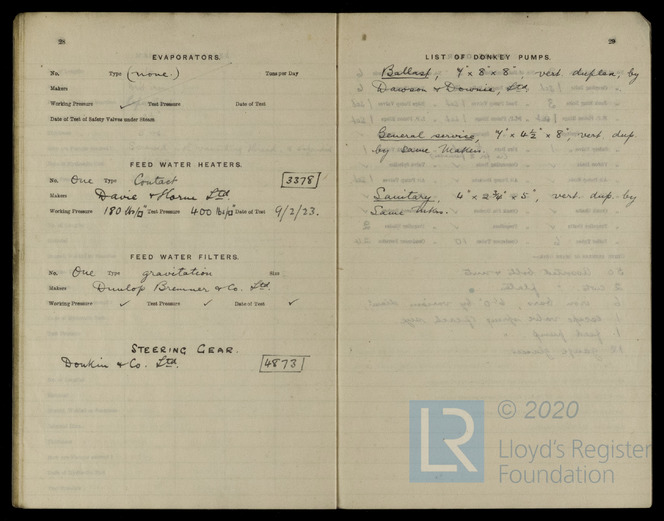 28
EVAPORATORS.
No. Type (none.) Tons per Day
Makers
Working Pressure ✓ Test Pressure Date of Test
Date of Test of Safety Valves under Steam
FEED WATER HEATERS.
No. One Type Contact 3378
Makers Davie & Horne Ltd
Working Pressure 180 lbs/□" Test Pressure 400 lbs/□" Date of Test 9/2/23.
FEED WATER FILTERS.
No. One Type gravitation Size
Makers Dunlop Bremner & Co. Ltd.
Working Pressure ✓ Test Pressure ✓ Date of Test ✓
STEERING GEAR.
Donkin & Co. Ltd. 4873
29
LIST OF DONKEY PUMPS.
Ballast, 7" × 8" × 8", vert. duplex, by
Dawson & Downie, Ltd.
General service, 7" × 4½" × 8", vert. dup.
by same makers.
Sanitary. 4" × 2¾" × 5", vert. dup. by
Same mkrs.
© 2020
LR
Lloyd's Register
Foundation